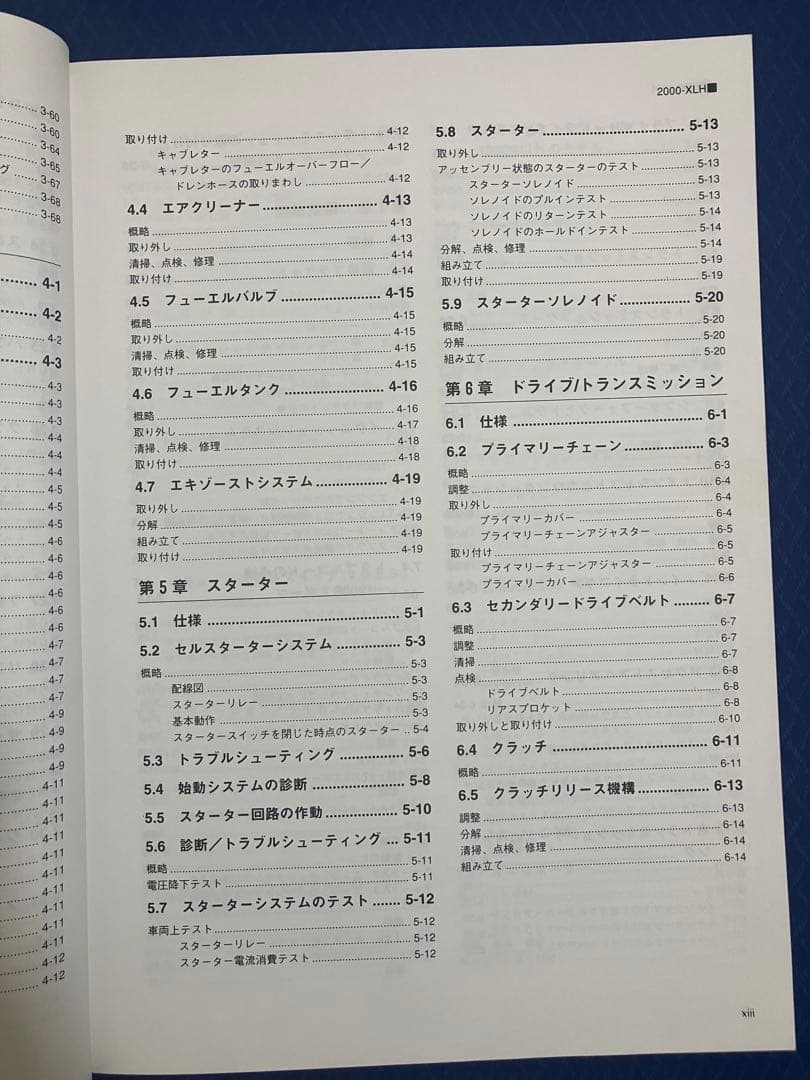 3-60
3-60
3-64
3-65
グ ...... 3-67
3-68
3-68
4-1
4-2
4-2
4-3
4-3
4-3
4-4
4-4
4-4
4-5
4-5
4-5
4-6
4-6
4-6
4-6
4-6
4-7
4-7
4-7
4-7
4-9
4-9
4-9
4-9
4-11
4-11
4-11
4-11
4-11
4-11
4-11
4-11
4-11
4-11
4-12
4-12
2000-XLH■
取り付け ...... 4-12
キャブレター ...... 4-12
キャブレターのフューエルオーバーフロー／
ドレンホースの取りまわし ...... 4-12
4.4 エアクリーナー ...... 4-13
概略 ...... 4-13
取り外し ...... 4-13
清掃、点検、修理 ...... 4-14
取り付け ...... 4-14
4.5 フューエルバルブ ...... 4-15
概略 ...... 4-15
取り外し ...... 4-15
清掃、点検、修理 ...... 4-15
取り付け ...... 4-15
4.6 フューエルタンク ...... 4-16
概略 ...... 4-16
取り外し ...... 4-17
清掃、点検、修理 ...... 4-18
取り付け ...... 4-18
4.7 エキゾーストシステム ...... 4-19
取り外し ...... 4-19
分解 ...... 4-19
組み立て ...... 4-19
取り付け ...... 4-19
第5章 スターター
5.1 仕様 ...... 5-1
5.2 セルスターターシステム ...... 5-3
概略 ...... 5-3
配線図 ...... 5-3
スターターリレー ...... 5-3
基本動作 ...... 5-3
スタータースイッチを閉じた時点のスターター .. 5-4
5.3 トラブルシューティング ...... 5-6
5.4 始動システムの診断 ...... 5-8
5.5 スターター回路の作動 ...... 5-10
5.6 診断／トラブルシューティング ... 5-11
概略 ...... 5-11
電圧降下テスト ...... 5-11
5.7 スターターシステムのテスト ...... 5-12
車両上テスト ...... 5-12
スターターリレー ...... 5-12
スターター電流消費テスト ...... 5-12
5.8 スターター ...... 5-13
取り外し ...... 5-13
アッセンブリー状態のスターターのテスト ...... 5-13
スターターソレノイド ...... 5-13
ソレノイドのプルインテスト ...... 5-13
ソレノイドのリターンテスト ...... 5-14
ソレノイドのホールドインテスト ...... 5-14
分解、点検、修理 ...... 5-14
組み立て ...... 5-19
取り付け ...... 5-19
5.9 スターターソレノイド ...... 5-20
概略 ...... 5-20
分解 ...... 5-20
組み立て ...... 5-20
第6章 ドライブ/トランスミッション
6.1 仕様 ...... 6-1
6.2 プライマリーチェーン ...... 6-3
概略 ...... 6-3
調整 ...... 6-4
取り外し ...... 6-4
プライマリーカバー ...... 6-4
プライマリーチェーンアジャスター ...... 6-5
取り付け ...... 6-5
プライマリーチェーンアジャスター ...... 6-5
プライマリーカバー ...... 6-6
6.3 セカンダリードライブベルト ...... 6-7
概略 ...... 6-7
調整 ...... 6-7
清掃 ...... 6-7
点検 ...... 6-8
ドライブベルト ...... 6-8
リアスプロケット ...... 6-8
取り外しと取り付け ...... 6-10
6.4 クラッチ ...... 6-11
概略 ...... 6-11
6.5 クラッチリリース機構 ...... 6-13
調整 ...... 6-13
分解 ...... 6-14
清掃、点検、修理 ...... 6-14
組み立て ...... 6-14
xiii